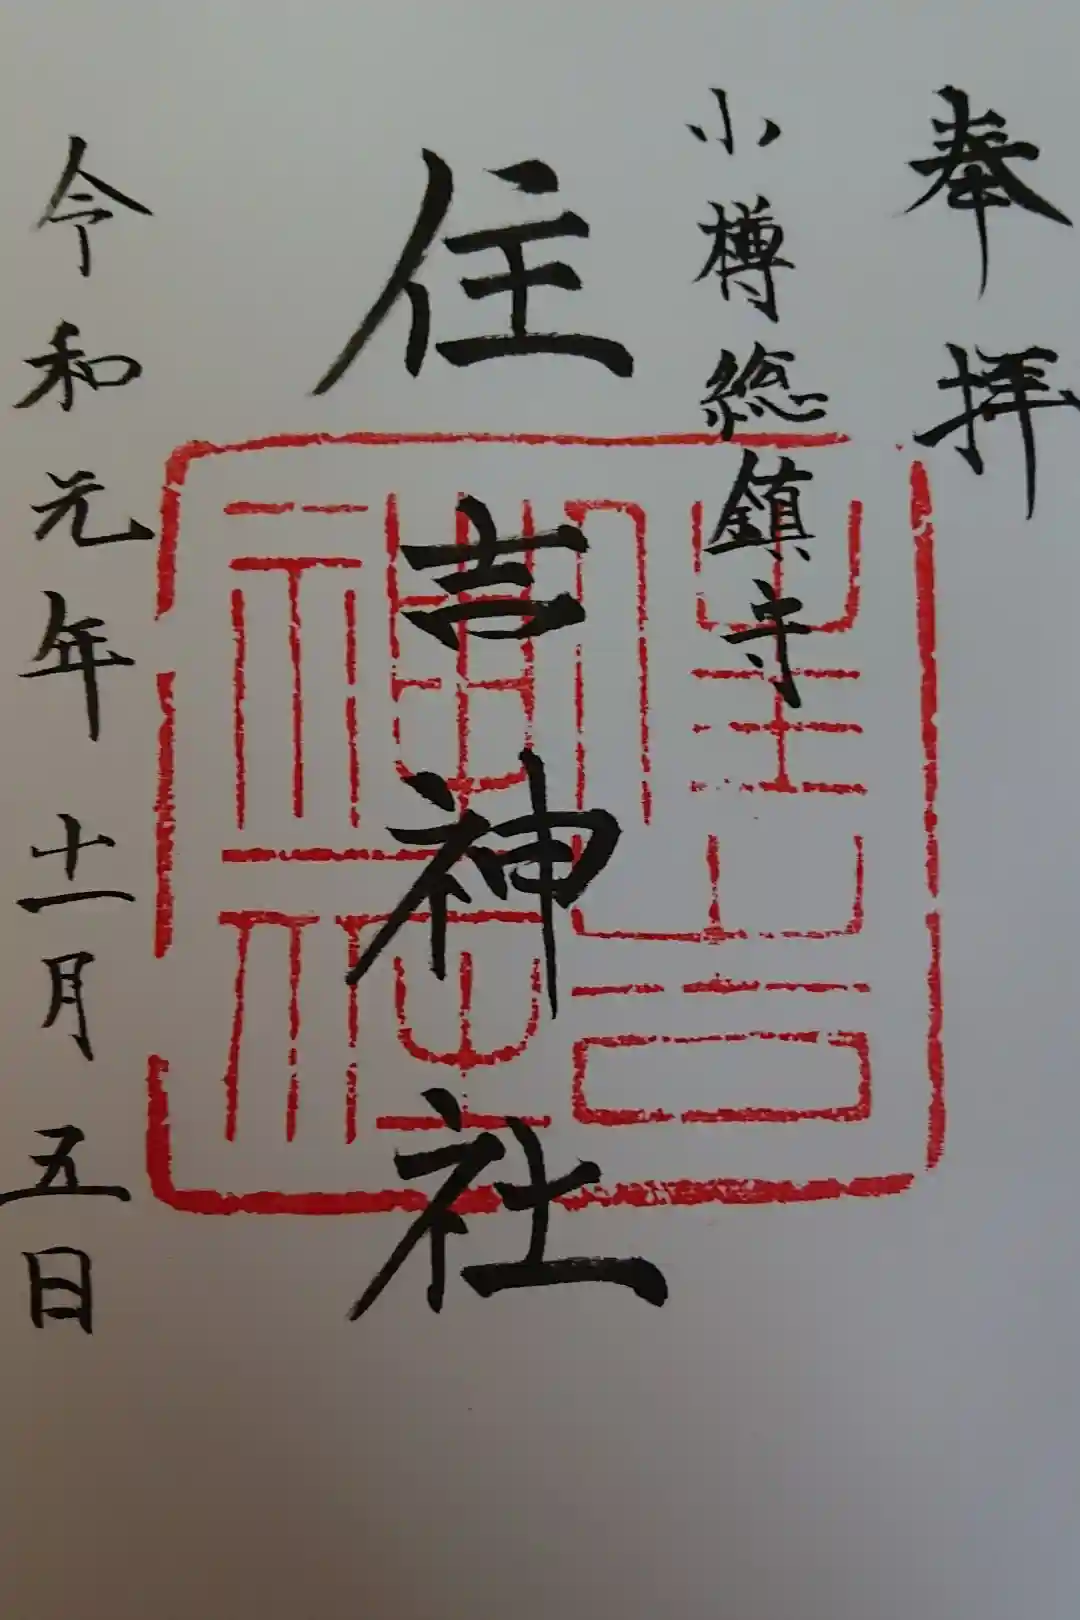 奉拝
小樽総鎮守
住吉神社
令和元年十一月五日
住吉神社